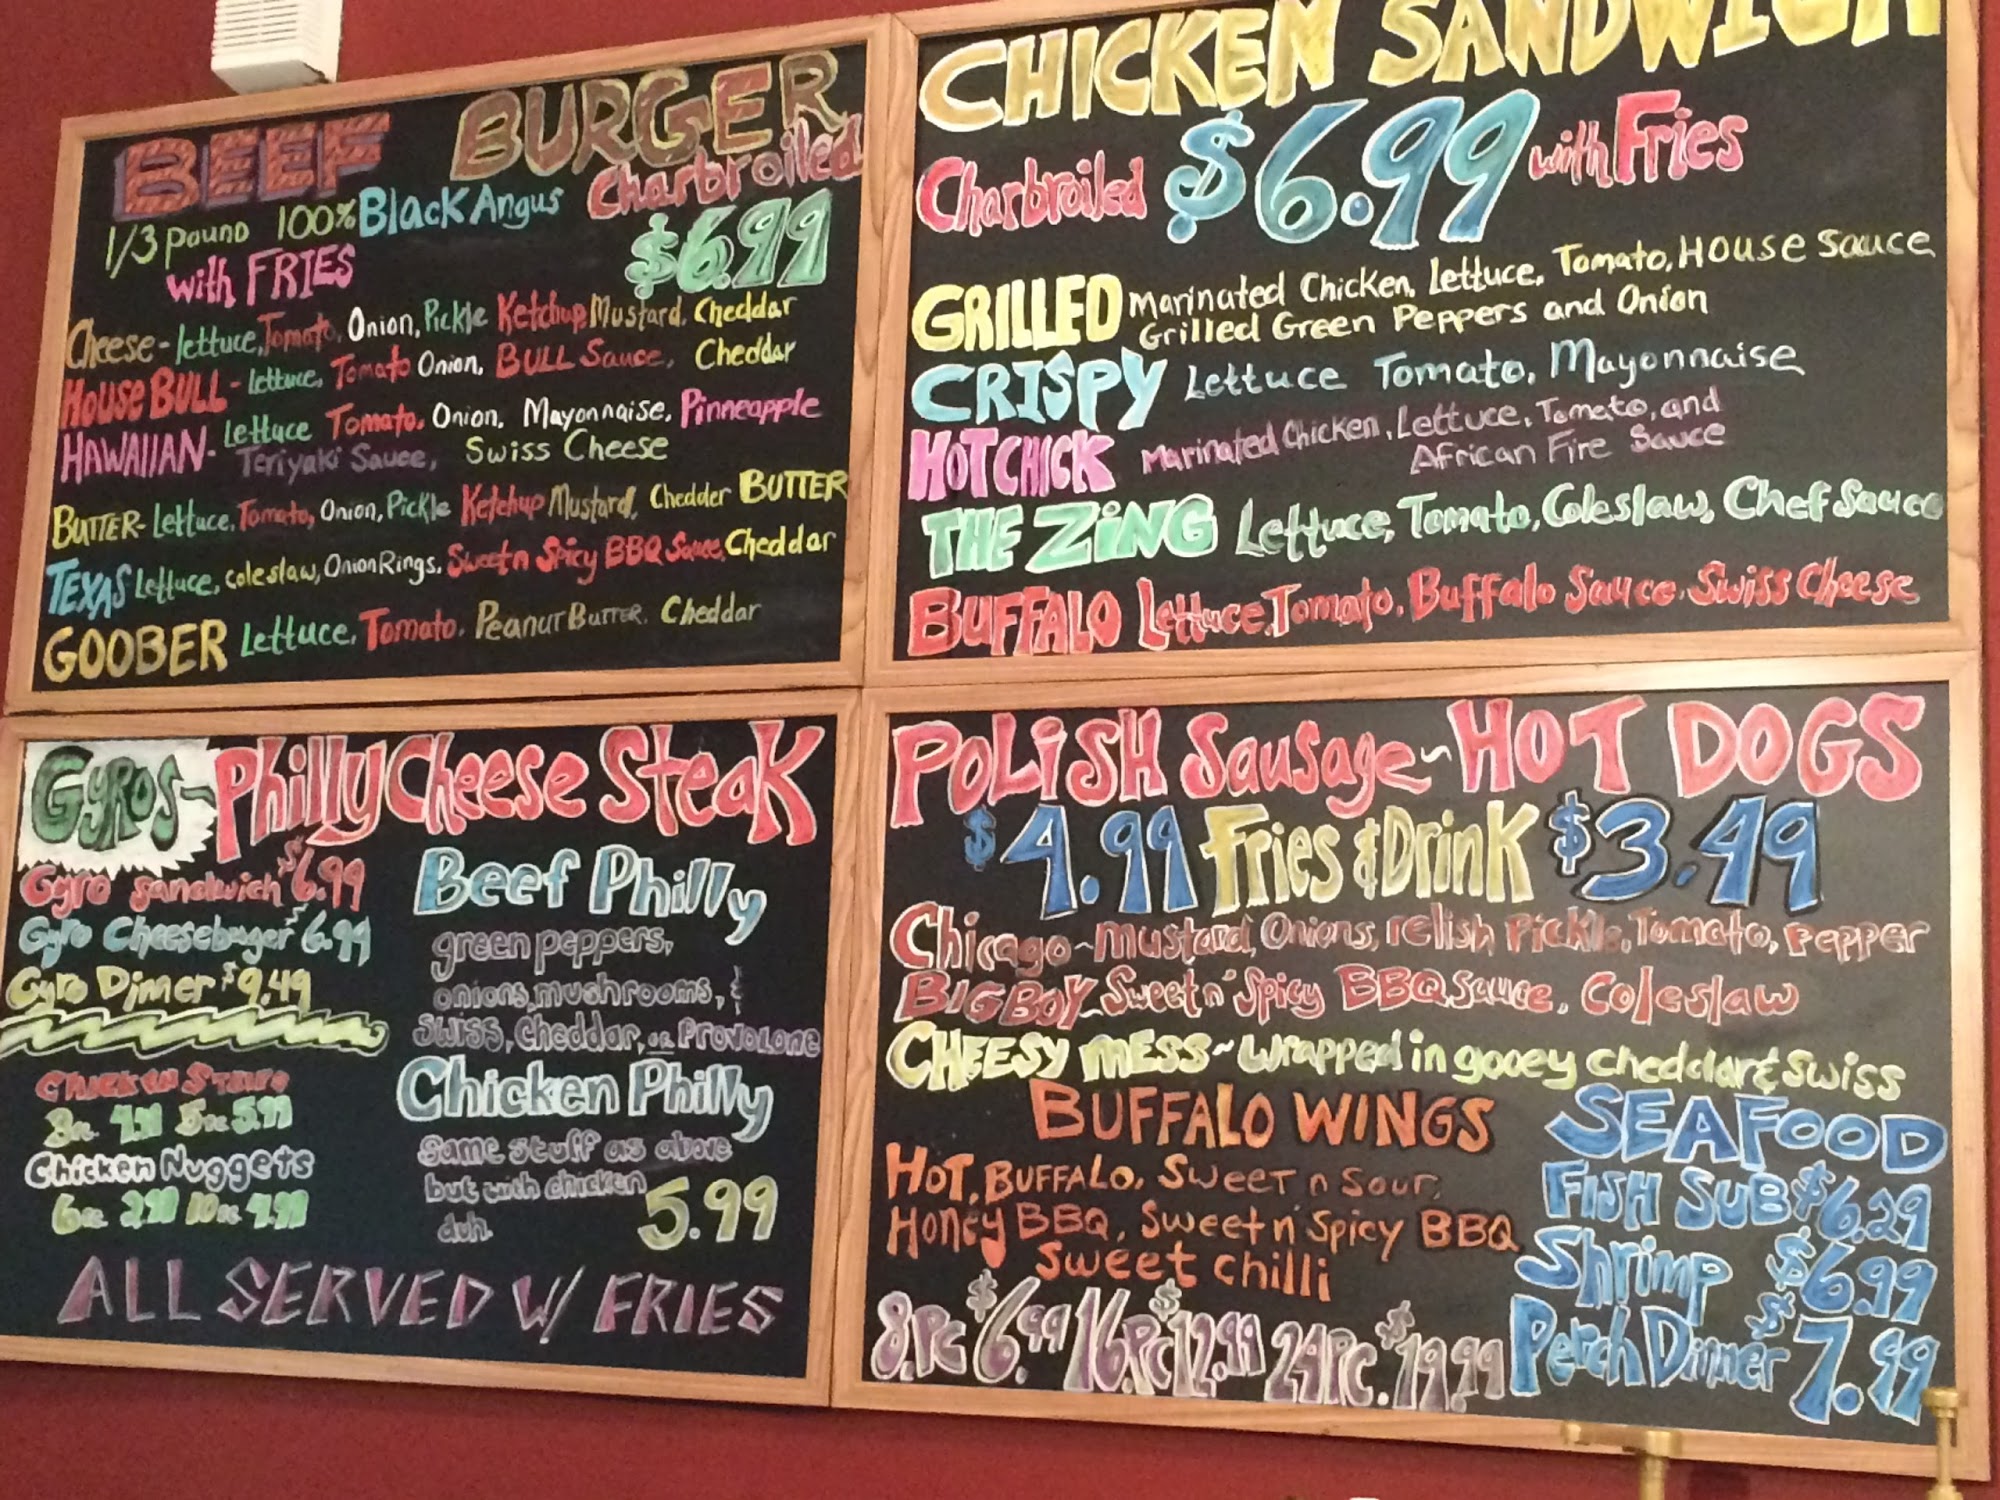 BEEF BURGER
1/3 pound 100% Black Angus Charbroiled
with FRIES $6.99
Cheese - lettuce, Tomato, Onion, Pickle Ketchup, Mustard, Cheddar
HOUSE BULL - lettuce, Tomato Onion, BULL Sauce, Cheddar
HAWAIIAN - Lettuce Tomato, Onion, Mayonnaise, Pinneapple
Teriyaki Sauce, Swiss Cheese
BUTTER - Lettuce, Tomato, Onion, Pickle Ketchup Mustard, Chedder BUTTER
TEXAS Lettuce, coleslaw, Onion Rings, Sweet n Spicy BBQ Sauce, Cheddar
GOOBER Lettuce, Tomato, Peanut Butter, Cheddar
CHICKEN SANDWICH
Charbroiled $6.99 with Fries
GRILLED Marinated Chicken, Lettuce, Tomato, House Sauce
Grilled Green Peppers and Onion
CRISPY Lettuce Tomato, Mayonnaise
HOT CHICK Marinated Chicken, Lettuce, Tomato, and
African Fire Sauce
THE ZiNG Lettuce, Tomato, Coleslaw, Chef Sauce
BUFFALO Lettuce, Tomato, Buffalo Sauce, Swiss Cheese
GYROS ~ Philly Cheese Steak
Gyro Sandwich $6.99
Gyro Cheeseburger $6.99
Gyro Dinner $9.49
Chicken Nuggets
Beef Philly
green peppers,
onions, mushrooms, &
Swiss, Cheddar, or Provolone
Chicken Philly
Same stuff as above
but with chicken
duh. 5.99
ALL SERVED W/ FRIES
POLiSH Sausage ~ HOT DOGS
$4.99 Fries & Drink $3.49
Chicago ~ Mustard, Onions, relish Pickle, Tomato, Pepper
BIG BOY ~ Sweet n' Spicy BBQ Sauce, Coleslaw
CHEESY MESS ~ wrapped in gooey cheddar & swiss
BUFFALO WINGS
HOT, BUFFALO, Sweet n Sour,
Honey BBQ, Sweet n' Spicy BBQ
Sweet chilli
8.Pc $6.99 16.Pc $12.99 24Pc. $19.99
SEAFOOD
FISH SUB $6.29
Shrimp $6.99
Perch Dinner $7.99